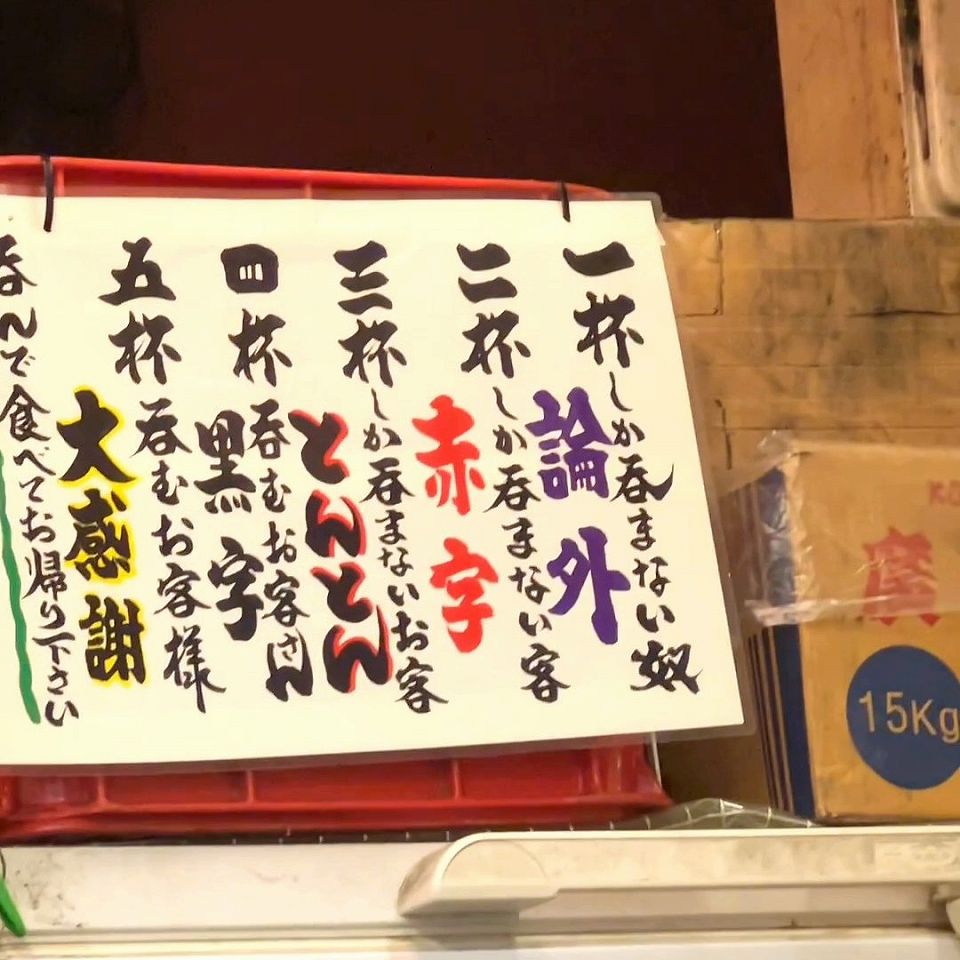 一杯しか呑まない奴
論外
二杯しか呑まない客
赤字
三杯しか呑まないお客
とんとん
四杯呑むお客さん
黒字
五杯呑むお客様
大感謝
呑んで食べてお帰り下さい
15Kg